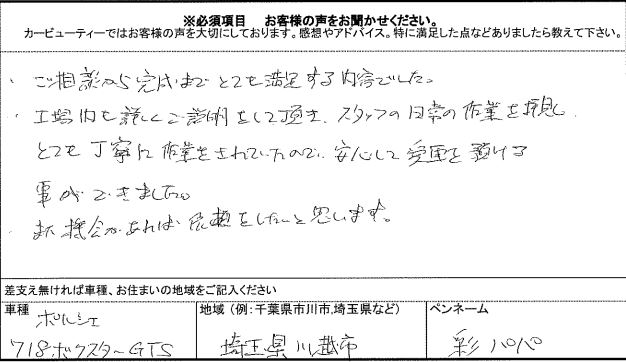 ※必須項目 お客様の声をお聞かせください。
カービューティーではお客様の声を大切にしております。感想やアドバイス。特に満足した点などありましたら教えて下さい。
・ご相談から完成までとても満足する内容でした。
・工場内も詳しくご説明をして頂き、スタッフの日常の作業を拝見し、
とても丁寧に作業をされていたので、安心して愛車を預ける
事ができました。
・また機会があれば依頼をしたいと思います。
差支え無ければ車種、お住まいの地域をご記入ください
車種 ポルシェ
718ボクスターGTS
地域（例：千葉県市川市,埼玉県など）
埼玉県川越市
ペンネーム
彩パパ